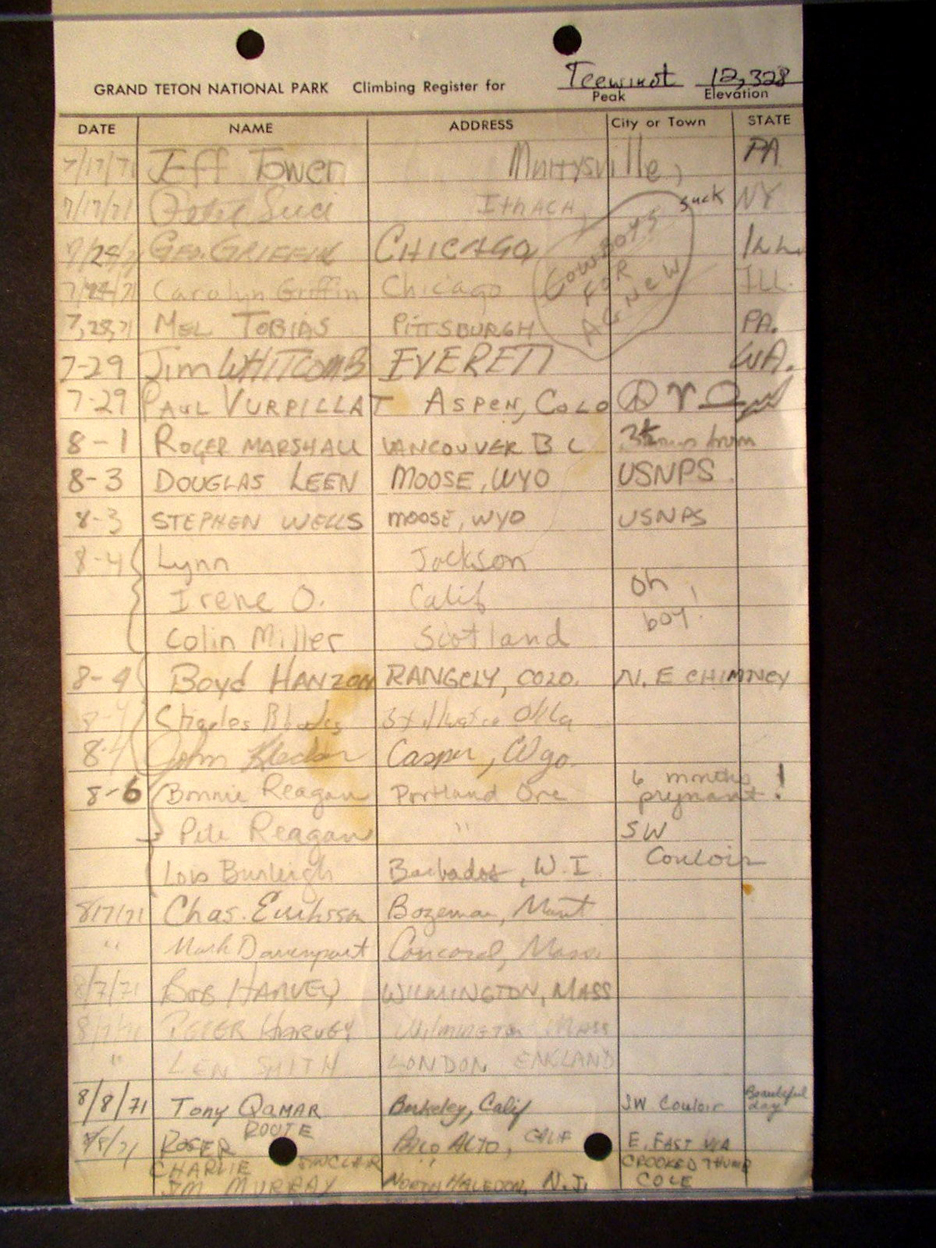 GRAND TETON NATIONAL PARK Climbing Register for Teewinot 12,328
Peak Elevation
DATE NAME ADDRESS City or Town STATE
7/17/71 Jeff Tower Murrysville, PA
7/17/71 Ithaca, suck NY
7/25/71 Geo. Griffin Chicago Ill.
COWBOYS
FOR
AGNEW
Carolyn Griffin Chicago ILL.
7,28,71 MEL TOBIAS PITTSBURGH PA.
7-29 Jim WHITCOMB EVERETT WA.
7-29 PAUL VURPILLAT ASPEN, COLO ☮ ♈
8-1 ROGER MARSHALL VANCOUVER B C
8-3 DOUGLAS LEEN MOOSE, WYO USNPS
8-3 STEPHEN WELLS MOOSE, WYO USNPS
8-4 Lynn Jackson
Irene O. Calif oh
Colin Miller Scotland boy!
8-4 Boyd HANZON RANGELY, COLO. N.E CHIMNEY
8-4 Stillwater Okla
8-4 John Casper, Wyo.
8-6 Bonnie Reagan Portland Ore 6 months pregnant!
Pete Reagan " SW
Lois Burleigh Barbados, W.I. Couloir
8/7/71 Chas. Eriksson Bozeman, Mont
" Mark Davenport Concord, Mass.
8/7/71 BOB HARVEY WILMINGTON, MASS
8/7/71 PETER HARVEY Wilmington Mass
" LEN SMITH LONDON, ENGLAND
8/8/71 Tony QAMAR Berkeley, Calif SW Couloir Beautiful day
8/8/71 ROGER ROUTE PALO ALTO, CALIF E. FAST VIA
CHARLIE SINCLAIR " CROOKED THUMB
JIM MURRAY NORTH HALEDON, N.J. COLE